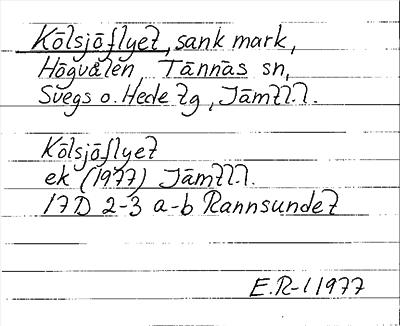 Kölsjöflyet, sank mark,
Högvålen, Tännäs sn,
Svegs o. Hede tg, Jämtl.l.
Kölsjöflyet
ek (1977) Jämtl.l.
17D 2-3 a-b Rannsundet
E.R-l 1977